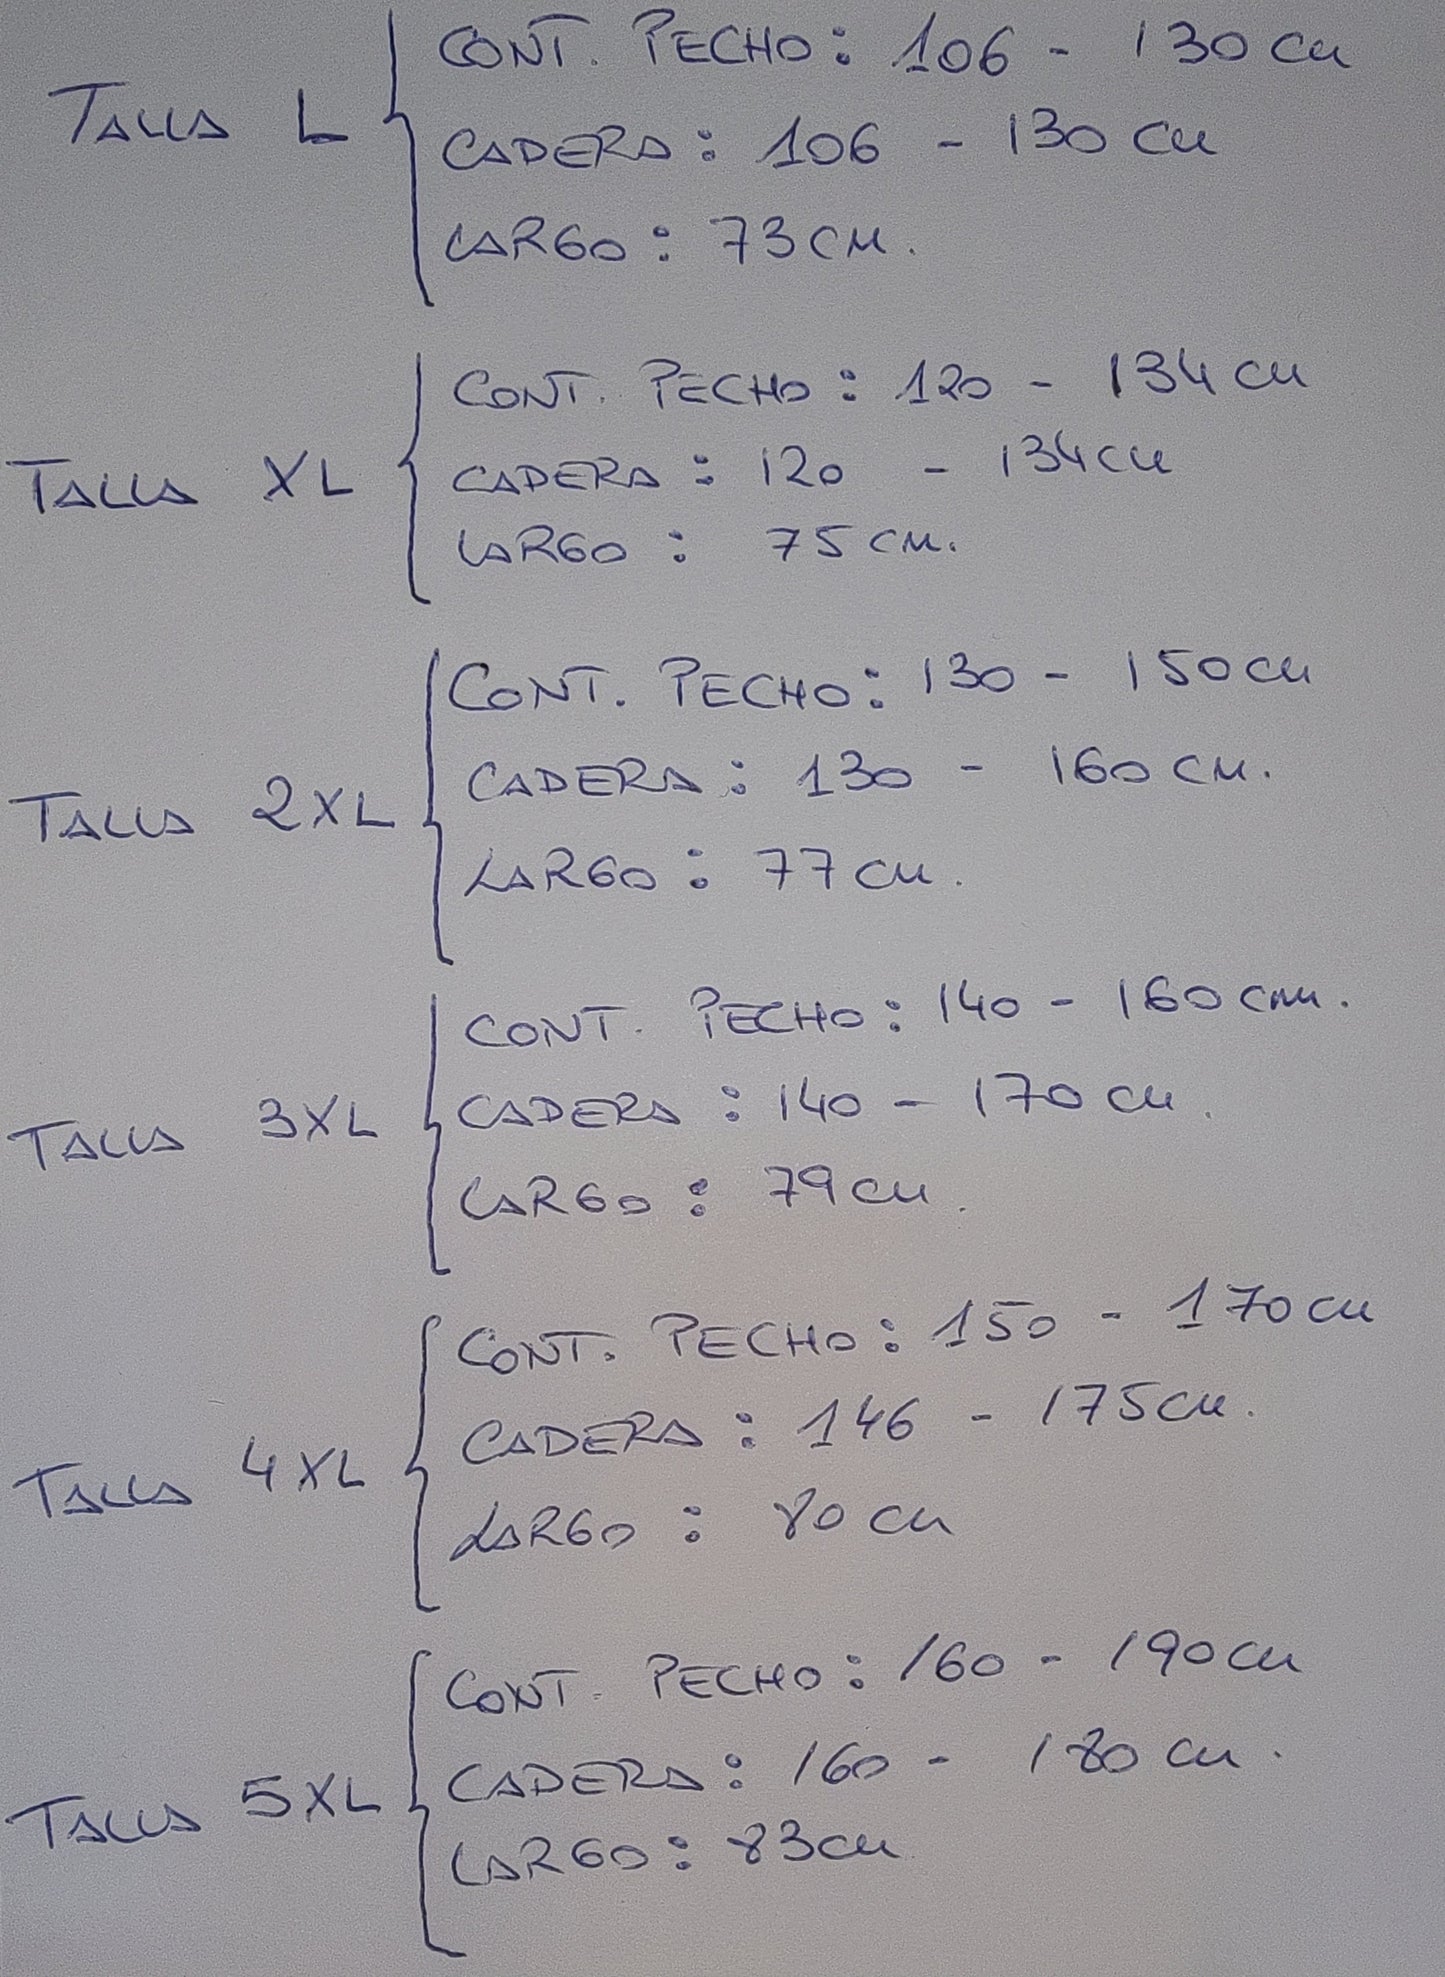 TALLA L
CONT. PECHO: 106 - 130 cm
CADERA: 106 - 130 cm
LARGO: 73 cm.
TALLA XL
CONT. PECHO: 120 - 134 cm
CADERA: 120 - 134 cm
LARGO: 75 cm.
TALLA 2XL
CONT. PECHO: 130 - 150 cm
CADERA: 130 - 160 cm.
LARGO: 77 cm.
TALLA 3XL
CONT. PECHO: 140 - 160 cm.
CADERA: 140 - 170 cm.
LARGO: 79 cm.
TALLA 4XL
CONT. PECHO: 150 - 170 cm
CADERA: 146 - 175 cm.
LARGO: 80 cm
TALLA 5XL
CONT. PECHO: 160 - 190 cm
CADERA: 160 - 180 cm.
LARGO: 83 cm